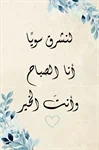 لنشرق سويًا
أنا الصباح
وأنتَ الخير